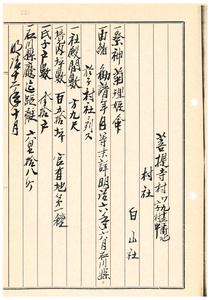 菩提寺村
村社
白山社
一祭神 菊理媛命
一由緒 勧請年月等未詳明治六年六月石川県
於テ村社ニ列ス
一社殿間数 方九尺
一境内坪数 百五拾坪 官有地第一種
一氏子戸数 拾戸
一石川県庁迄距離 六里拾八町
明治十二年